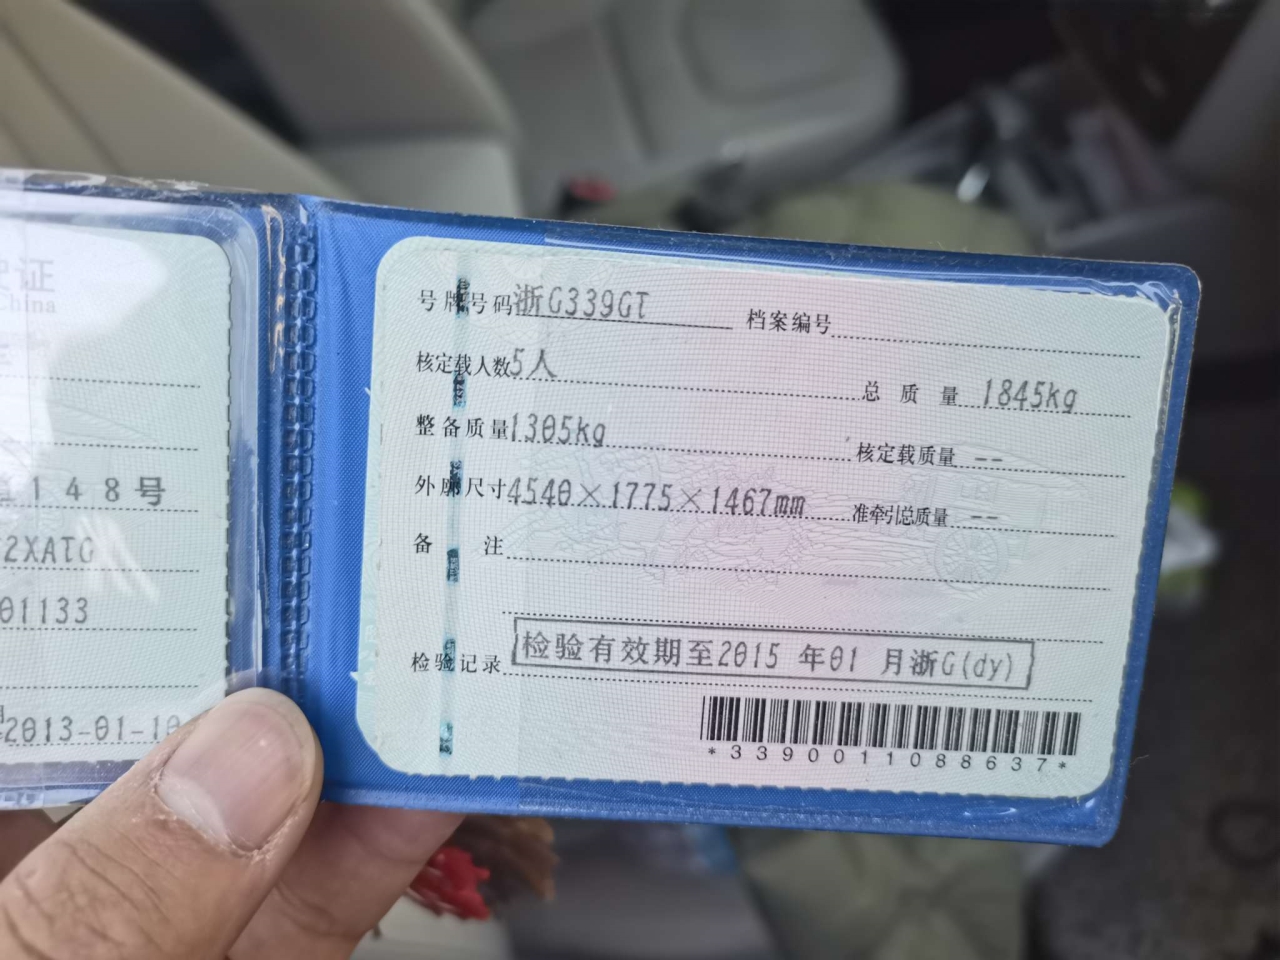 证
China
148号
2XATG
01133
2013-01-10
号牌号码浙G339GT 档案编号
核定载人数5人
总质量 1845kg
整备质量1305kg
核定载质量 --
外廓尺寸4540×1775×1467mm 准牵引总质量 --
备注
检验记录 检验有效期至2015 年01 月浙G(dy)
*3390011088637*